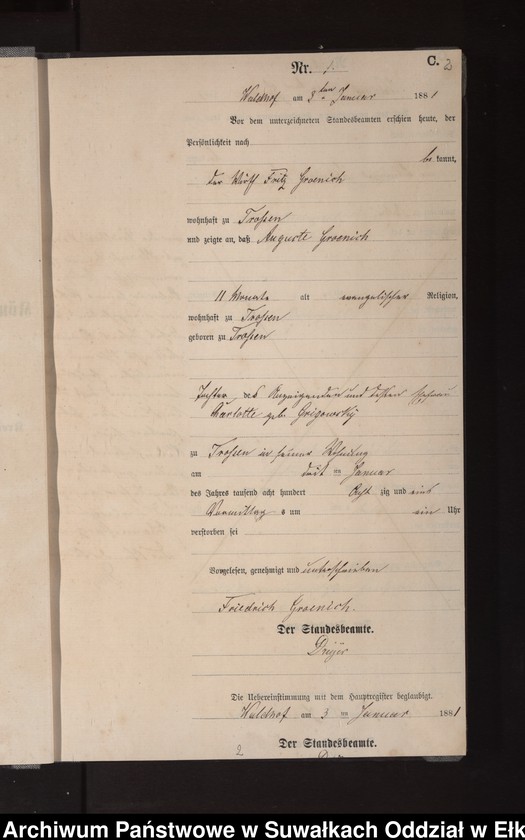 C. 2
Nr. 1.
Waldhof am 3ten Januar 1881
Vor dem unterzeichneten Standesbeamten erschien heute, der
Persönlichkeit nach
be kannt,
der Wirth Fritz Groenich
wohnhaft zu Trossen
und zeigte an, daß Auguste Groenich
11 Monate alt evangelischer Religion,
wohnhaft zu Trossen
geboren zu Trossen
Tochter des Anzeigenden und dessen Ehefrau
Charlotte geb. Grigowsky
zu Trossen in seiner Wohnung
am drei ten Januar
des Jahres tausend acht hundert Acht zig und eins
Vormittag s um ein Uhr
verstorben sei
Vorgelesen, genehmigt und unterschrieben
Friedrich Groenich.
Der Standesbeamte.
Die Uebereinstimmung mit dem Hauptregister beglaubigt.
Waldhof am 3 ten Januar 1881
Der Standesbeamte.
2
Archiwum Państwowe w Suwałkach Oddział w Ełk